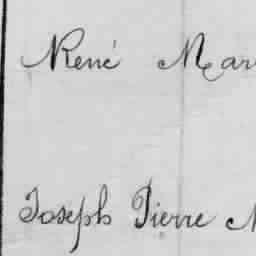 René Mar
Joseph Pierre